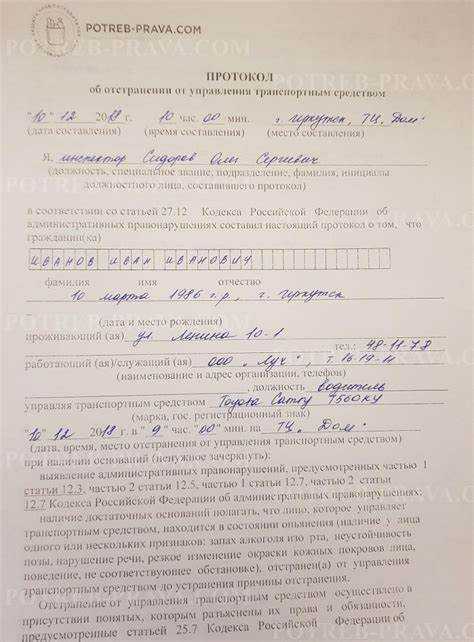 POTREB-PRAVA.COM
ПРОТОКОЛ
об отстранении от управления транспортным средством
"10" 12 2018 г. 10 час. 00 мин. г. Иркутск, ТЦ "Дом"
(дата составления) (время составления) (место составления)
Я, инспектор Сидоров Олег Сергеевич
(должность, специальное звание, подразделение, фамилия, инициалы
должностного лица, составившего протокол)
в соответствии со статьей 27.12 Кодекса Российской Федерации об
административных правонарушениях составил настоящий протокол о том, что
гражданин(ка)
ИВАНОВ ИВАН ИВАНОВИЧ
фамилия имя отчество
10 марта 1986 г.р., г. Иркутск
(дата и место рождения)
проживающий (ая) ул. Ленина 10-1
тел.: 48-11-78
работающий (ая)/служащий (ая) ООО "Луч" т. 16-19-11
(наименование и адрес организации, телефон)
, должность водитель
управляя транспортным средством Toyota Camry
(марка, гос. регистрационный знак)
"10" 12 2018 г. в "9" час. "00" мин. на ТЦ "Дом"
(дата, время, место отстранения от управления транспортным средством)
при наличии оснований (ненужное зачеркнуть):
выявление административных правонарушений, предусмотренных частью 1
статьи 12.3, частью 2 статьи 12.5, частью 1 статьи 12.7, частью 2 статьи
12.7 Кодекса Российской Федерации об административных правонарушениях;
наличие достаточных оснований полагать, что лицо, которое управляет
транспортным средством, находится в состоянии опьянения (наличие у лица
одного или нескольких признаков: запах алкоголя изо рта, неустойчивость
позы, нарушение речи, резкое изменение окраски кожных покровов лица,
поведение, не соответствующее обстановке), отстранен(а) от управления
транспортным средством до устранения причины отстранения.
Отстранение от управления транспортным средством осуществлено в
присутствии понятых, которым разъяснены их права и обязанности,
предусмотренные статьей 25.7 Кодекса Российской Федерации об